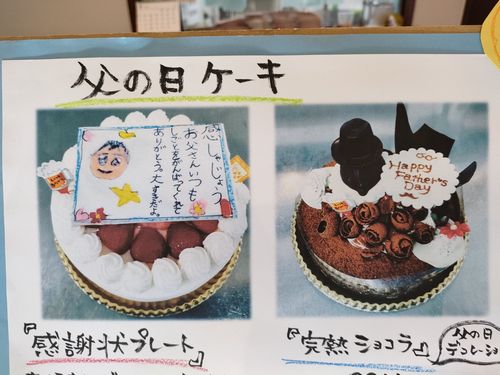 父の日ケーキ
感しゃじょう
お父さんいつも
しごとをがんばってくれて
ありがとう。大すきだよ。
Happy
Father's
Day
『感謝状プレート』
『完熟ショコラ』
父の日
デコレーション